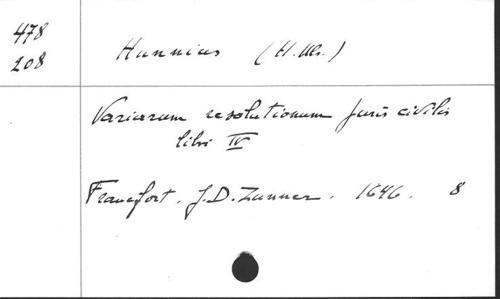 478
208
Hunnius (H. Ulr.)
Variarum resolutionum juris civilis
libri IV
Francfort. J. D. Zunner. 1646. 8